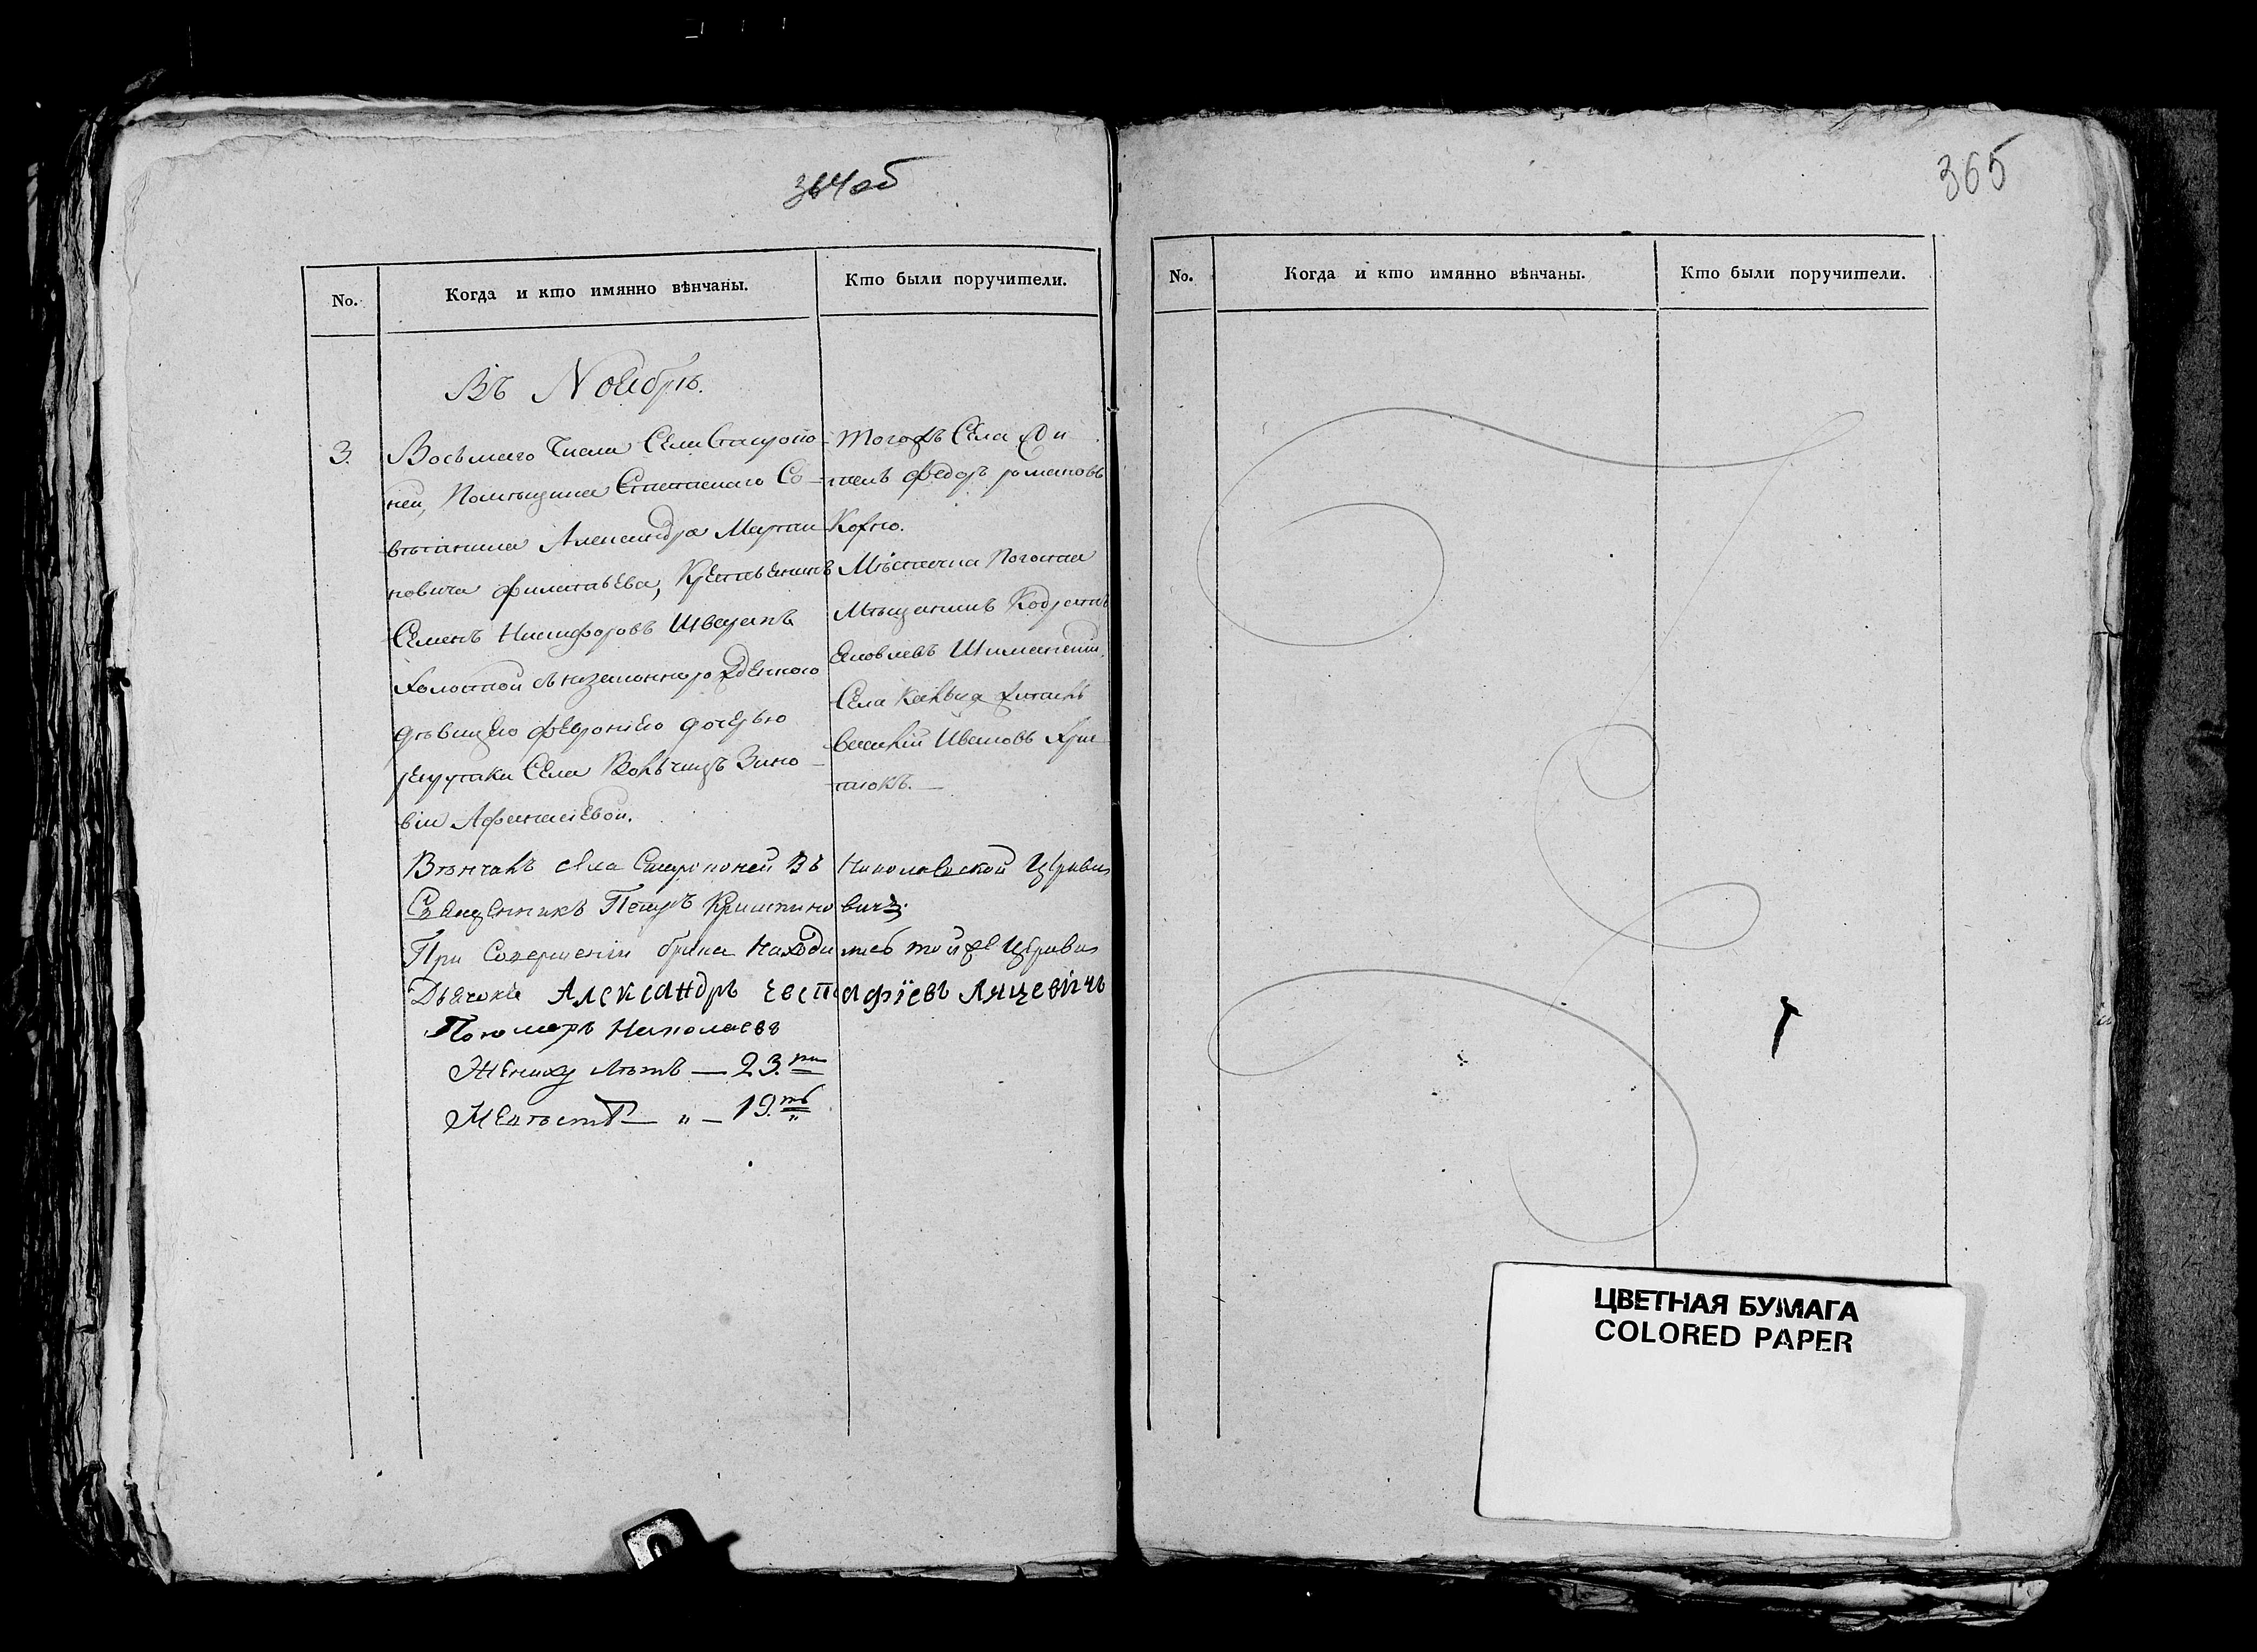 364 об
No.
Когда и кто имянно вѣнчаны.
Кто были поручители.
Въ Ноябрѣ.
3.
Восьмаго Числа Села Ставропо-
неи, Помѣщика Статскаго Со-
вѣтника Александра Марти
новича Филатьева, Крестьянинъ
Семенъ Никифоровъ Шваракъ
холостой съ незаконнорожденною
дѣвицею Феврониею дочерью
рекрутки Села Вольчицъ Зино-
віи Афанасіевой.
Тогожъ Села Жи
тель Федоръ романовъ
Кохно.
Мѣстечка Погоста
Мѣщанинъ Кодратъ
Яковлевъ Шиманскій.
Села житель
Василій Ивановъ Хри
тюкъ.
Вѣнчалъ села Ставропоней Въ Николаевской Церкви
Священникъ Петръ Криштиновичъ.
При Совершеніи брака Находились той же Церкви
Дьячокъ Александръ Евстафіевъ Ляцевичъ
Пономарь Николаевъ
Жениху Лѣтъ — 23.ти
Невѣстѣ — „ — 19.ть
365
No.
Когда и кто имянно вѣнчаны.
Кто были поручители.
ЦВЕТНАЯ БУМАГА
COLORED PAPER